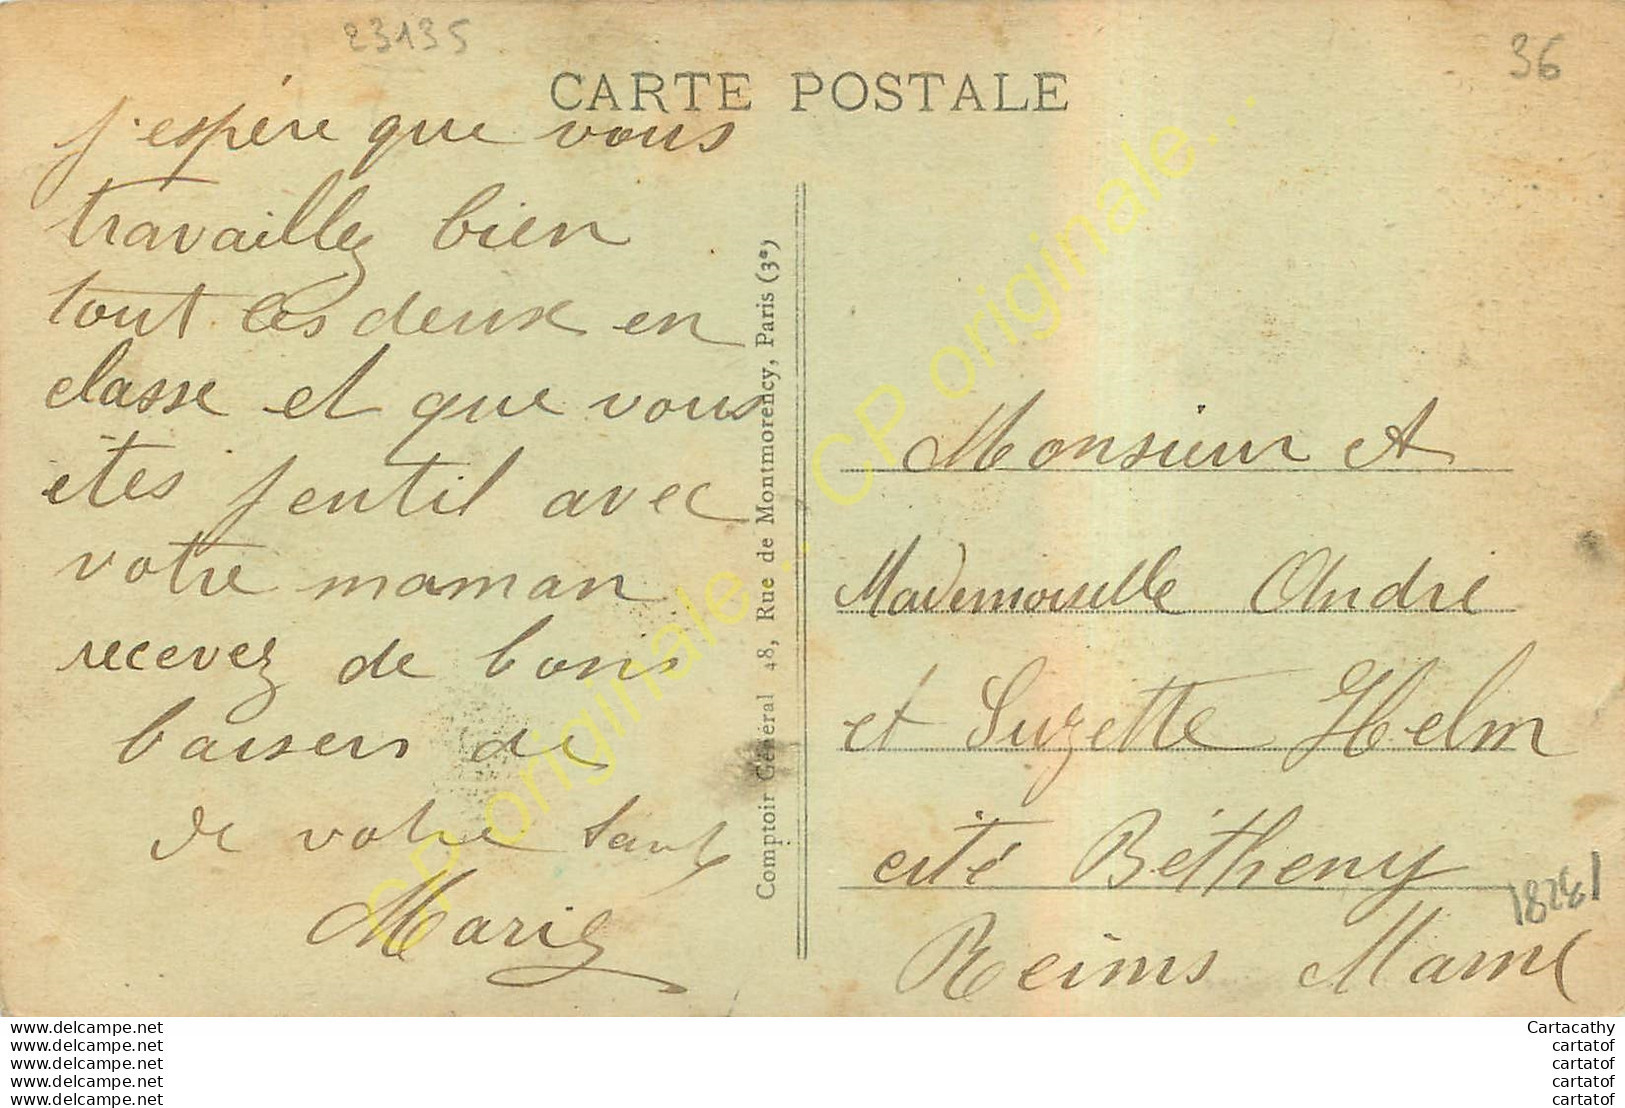 23135
36
CARTE POSTALE
j'espère que vous
travaillez bien
tout les deux en
classe et que vous
êtes jentil avec
votre maman
recevez de bons
baisers de
de votre tante
Marie
Comptoir Général 48, Rue de Montmorency, Paris (3e)
Monsieur et
Mademoiselle André
et Suzette Helm
cité Bétheny
Reims Marne
18281
CP originale... CP originale... CP originale...
www.delcampe.net
www.delcampe.net
www.delcampe.net
www.delcampe.net
www.delcampe.net
Cartacathy
cartatof
cartatof
cartatof
cartatof